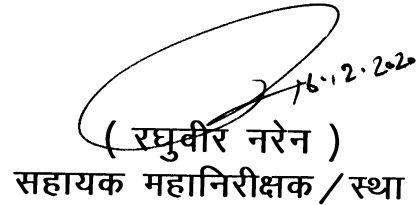 16.12.2020
( रघुवीर नरेन )
सहायक महानिरीक्षक / स्था